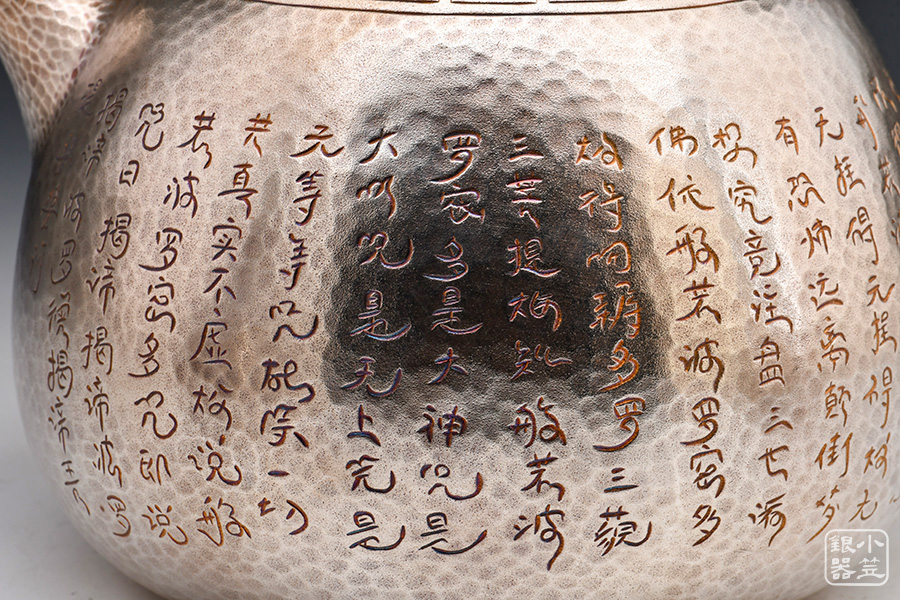 无挂得无挂得故无
有恐怖远离颠倒梦
想究竟涅盘三世诸
佛依般若波罗密多
故得阿耨多罗三藐
三菩提故知般若波
罗密多是大神咒是
大明咒是无上咒是
无等等咒能除一切
苦真实不虚故说般
若波罗密多咒即说
咒曰揭谛揭谛波罗
揭谛波罗僧揭谛
小笠
銀器